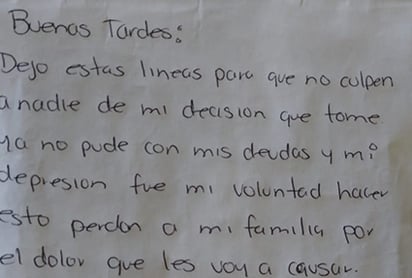 Buenas Tardes:
Dejo estas lineas para que no culpen
a nadie de mi decision que tome
ya no pude con mis deudas y mi
depresion fue mi voluntad hacer
esto perdon a mi familia por
el dolor que les voy a causar.